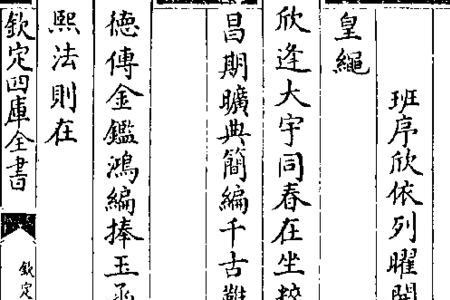 班序欣依列曜
皇繩
欣逢大宇同春在坐
昌期曠典簡編千古難
德傳金鑑鴻編捧玉函
熙法則在
欽定四庫全書
欽定